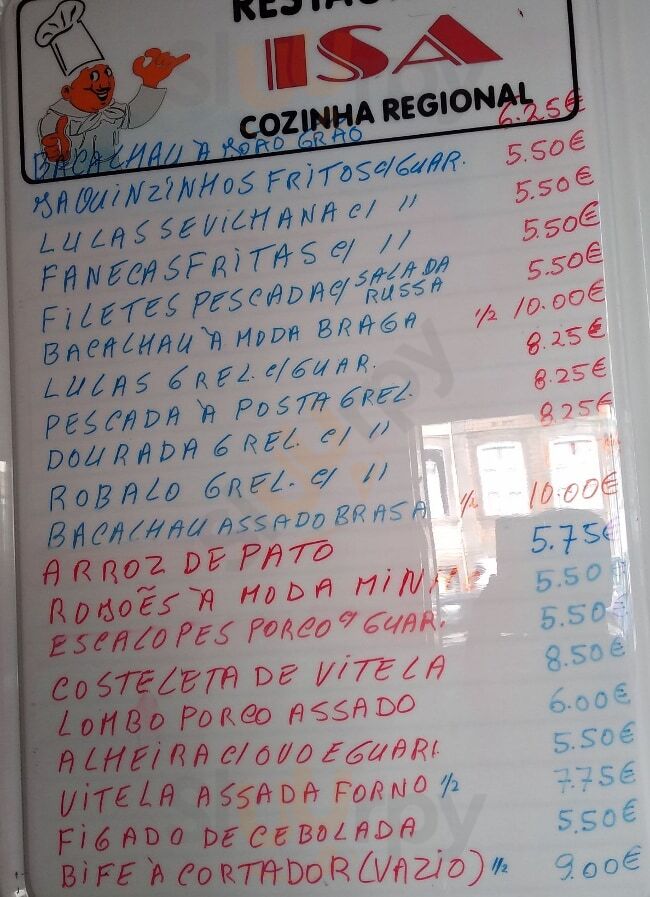 RESTAU
ISA
COZINHA REGIONAL
BACALHAU À JOÃO GRÃO 6.25€
JAQUINZINHOS FRITOS C/GUAR. 5.50€
LULAS SEVILHANA C/ " 5.50€
FANECAS FRITAS C/ " 5.50€
FILETES PESCADA C/ SALADA RUSSA 5.50€
BACALHAU À MODA BRAGA 1/2 10.00€
LULAS GREL. C/GUAR. 8.25€
PESCADA À POSTA GREL. 8.25€
DOURADA GREL. C/ " 8.25€
ROBALO GREL. C/ "
BACALHAU ASSADO BRASA 1/2 10.00€
ARROZ DE PATO 5.75€
ROJOÕES À MODA MINHO 5.50
ESCALOPES PORCO C/ GUAR. 5.50
COSTELETA DE VITELA 8.50€
LOMBO PORCO ASSADO 6.00€
ALHEIRA C/ OVO E GUARI. 5.50€
VITELA ASSADA FORNO 1/2 7.75€
FIGADO DE CEBOLADA 5.50€
BIFE À CORTADOR (VAZIO) 1/2 9.00€